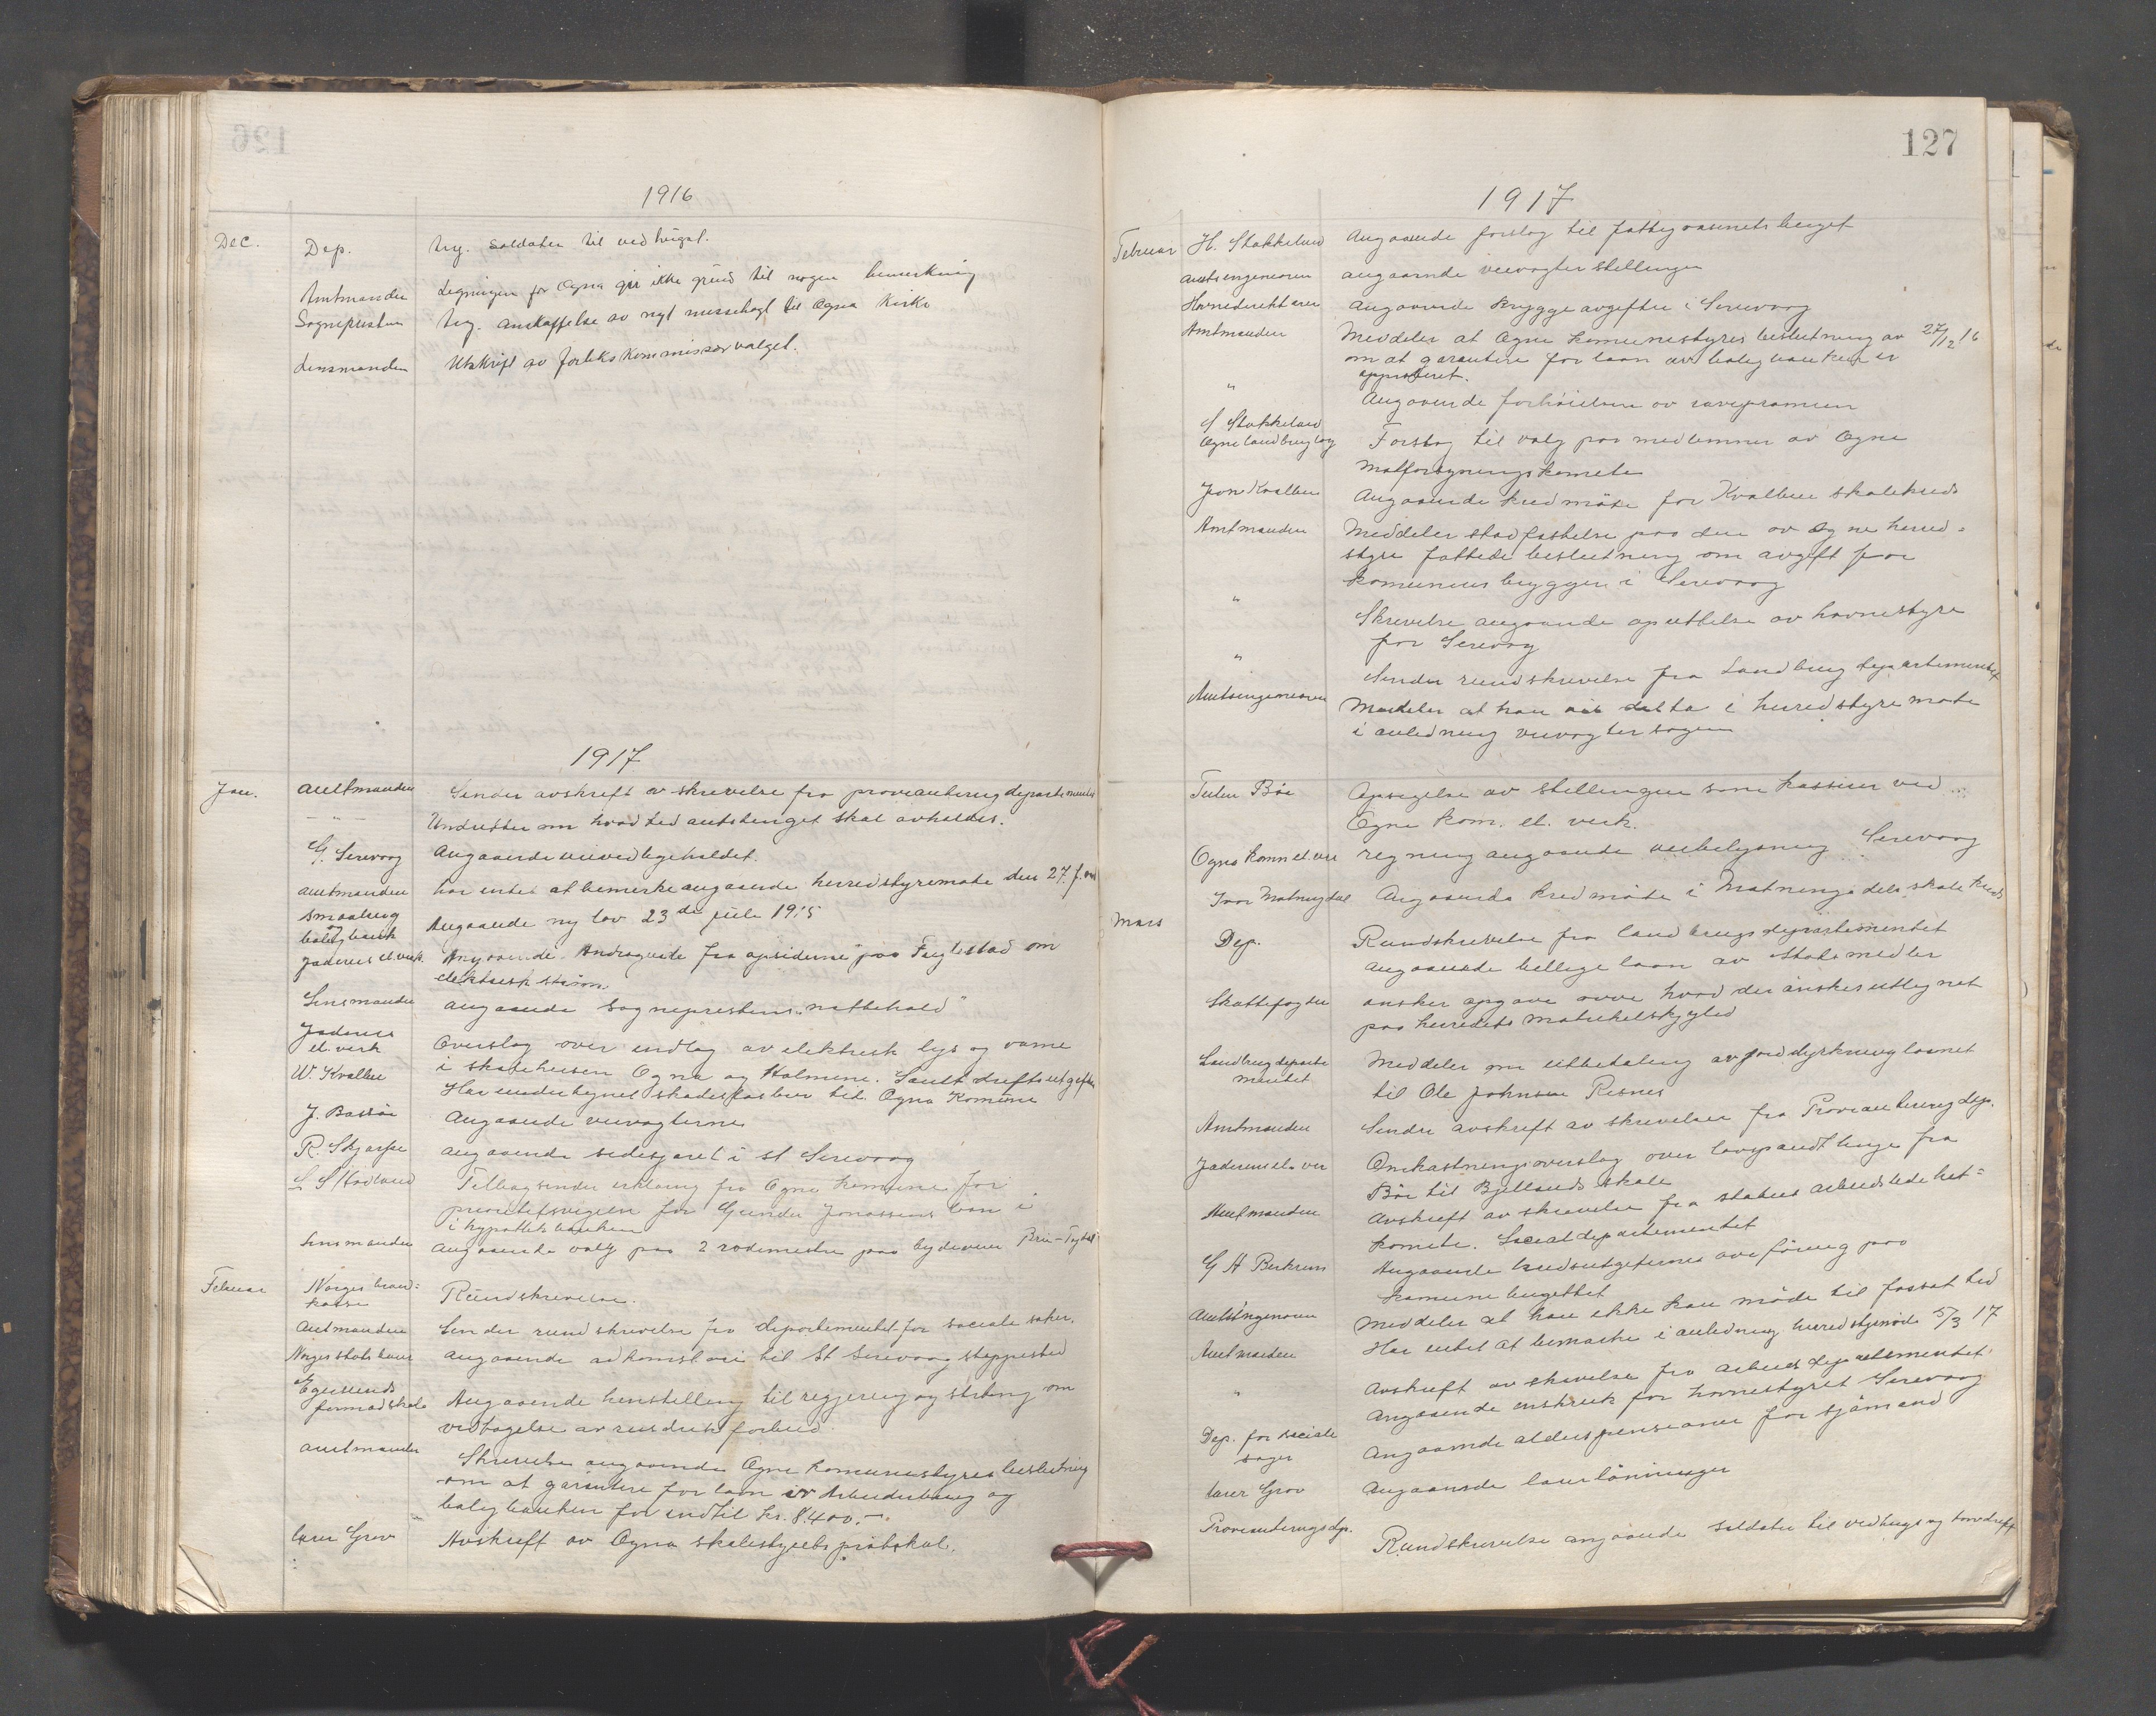 1916
Dec. Dep. Ang. soldater til vedhugst.
Amtmanden Ligningen for Ogna gir ikke grund til nogen bemerkning
Sognepresten Ang. anskaffelse av nyt messehagl til Ogna Kirke
Lensmanden Utskrift av forlikskommissærvalget.
1917
Jan. Amtmanden Sender avskrift av skrivelse fra provianteringsdepartementet
— " — Underretter om hvad tid amtstinget skal avholdes.
G. Sirevaag Angaaende veivedlikeholdet.
Amtmanden har intet at bemerke angaaende herredstyremøte den 27. f. md
Smaabrug og boligbank Angaaende ny lov 23de juli 1915
Jæderens el. verk. Angaaende Andragende fra opsiderne paa Fuglestad om
elektrisk strøm.
Lensmanden angaaende Sogneprestens "nattehold"
Jæderens el. verk Overslag over indlæg av elektrisk lys og varme
i skolehusene Ogna og Holmene. Samt driftsutgifter
W. Kvalbein Har undertegnet skadesløsbrev til Ogna Komune
J. Bassøe Angaaende veivogterne
R. Skjærpe angaaende in st Sirevaag
L. Stadland Tilbagsender erklæring fra Ogna Komune for
prioritetsvigelse for Gunder Jonassens laan i
i hypotekbanken
Lensmanden angaaende valg paa 2 rodemestre paa bydeveien Bru - Tytland
Februar Norges brand= kasse Rundskrivelse.
Amtmanden Sender rundskrivelse fra departementet for sociale saker.
Norges statsbaner angaaende adkomstvei til St Sirevaag stoppested
Egersunds formandskab Angaaende henstilling til regjering og storting om
vedtagelse av rusdriksforbud.
Amtmanden Skrivelse angaaende Ogna Komunestyres beslutning
om at garantere for laan av Arbeiderbrug og
boligbanken for indtil kr. 8.400.-
Lærer Grov Avskrift av Ogna skolestyrets protokol.
127
1917
Februar H. Stokkeland Angaaende forslag til fattigvæsnets budget
Amtsingeniøren angaaende veivogterstillingen
Havnedirektøren Angaaende bryggeavgifter i Sirevaag
Amtmanden Meddeler at Ogna Komunestyres beslutning av 27/12 16
om at garantere for laan av boligbanken er
approberet.
" Angaaende forhøielsen av rævepræmien
S Stokkeland Ogna landbruglag Forslag til valg paa medlemmer av Ogna
Matforsyningskomite
Jon Kvalbein Angaaende kredsmøte for Kvalbein skolekreds
Amtmanden Meddeler stadfæstelse paa den av Ogna herred=
styre fattede beslutning om avgift for
komunens bryggen i Sirevaag
" Skrivelse angaaende oprettelse av havnestyre
for Sirevaag
" Sender rundskrivelse fra Landbrugdepartementet
Amtsingeniøren Meddeler at han vil delta i herredstyremøte
i anledning veivogtersagen
Bøe Opsigelse av stillingen som kasserer ved
Ogna kom. el. verk.
Ogna kom el. ver regning angaaende veibelysning Sirevaag
Ivar Matningsdal Angaaende kredsmøte i Matningsdals skolekreds
Mars Dep. Rundskrivelse fra landbrugsdepartementet
angaaende billige laan av Statsmidler
Skattefogden ønsker opgave over hvad der ønskes utlignet
paa herredets matrikelskyld
Landbrugdepartementet Meddeler om utbetaling av jorddyrkninglaanet
til Ole Johnsen Risnes
Amtmanden Sender avskrift av skrivelser fra Provianteringdep.
Jæderens el. ver Omkastningsoverslag over lavspændtlinje fra
Bøe til Bjellands skole
Amtmanden Avskrift av skrivelse fra statens arbeidsledihet=
komite. Socialdepartementet
G A Birkrem Angaaende kredsutgifternes overføring paa
Komunebudgettet
Amtsingeniøren Meddeler at han ikke kan møde til fastsat tid
Amtmanden Har intet at bemærke i anledning herredstyremøde 5/3 17
" Avskrift av skrivelse fra arbeidsdepartementet
Angaaende instruks for havnestyret Sirevaag
Dep. for sociale sager Angaaende alderspensioner for sjømænd
Lærer Grov Angaaende lærerlønninger
Provianteringsdep. Rundskrivelse angaaende soldater til vedhugs og torvdrift